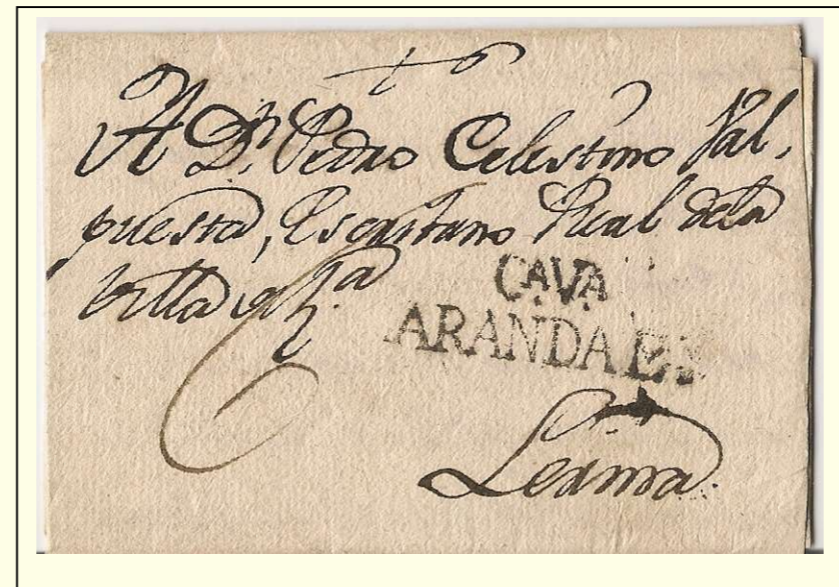 A Dn. Pedro Celestino Val,
puesta, Escrivano Real dela
Villa de
6
CAVA
ARANDA E.
Lerma.